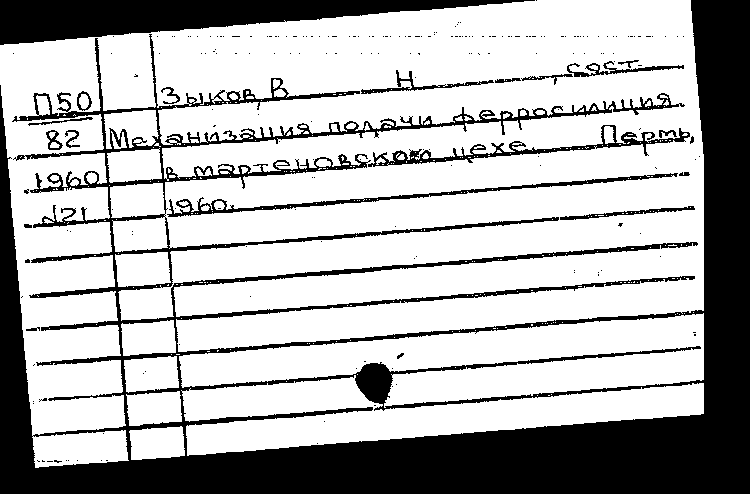 П50 Зыков, В Н , сост.
82 Механизация подачи ферросилиция
1960 в мартеновском цехе. Пермь,
№21 1960.